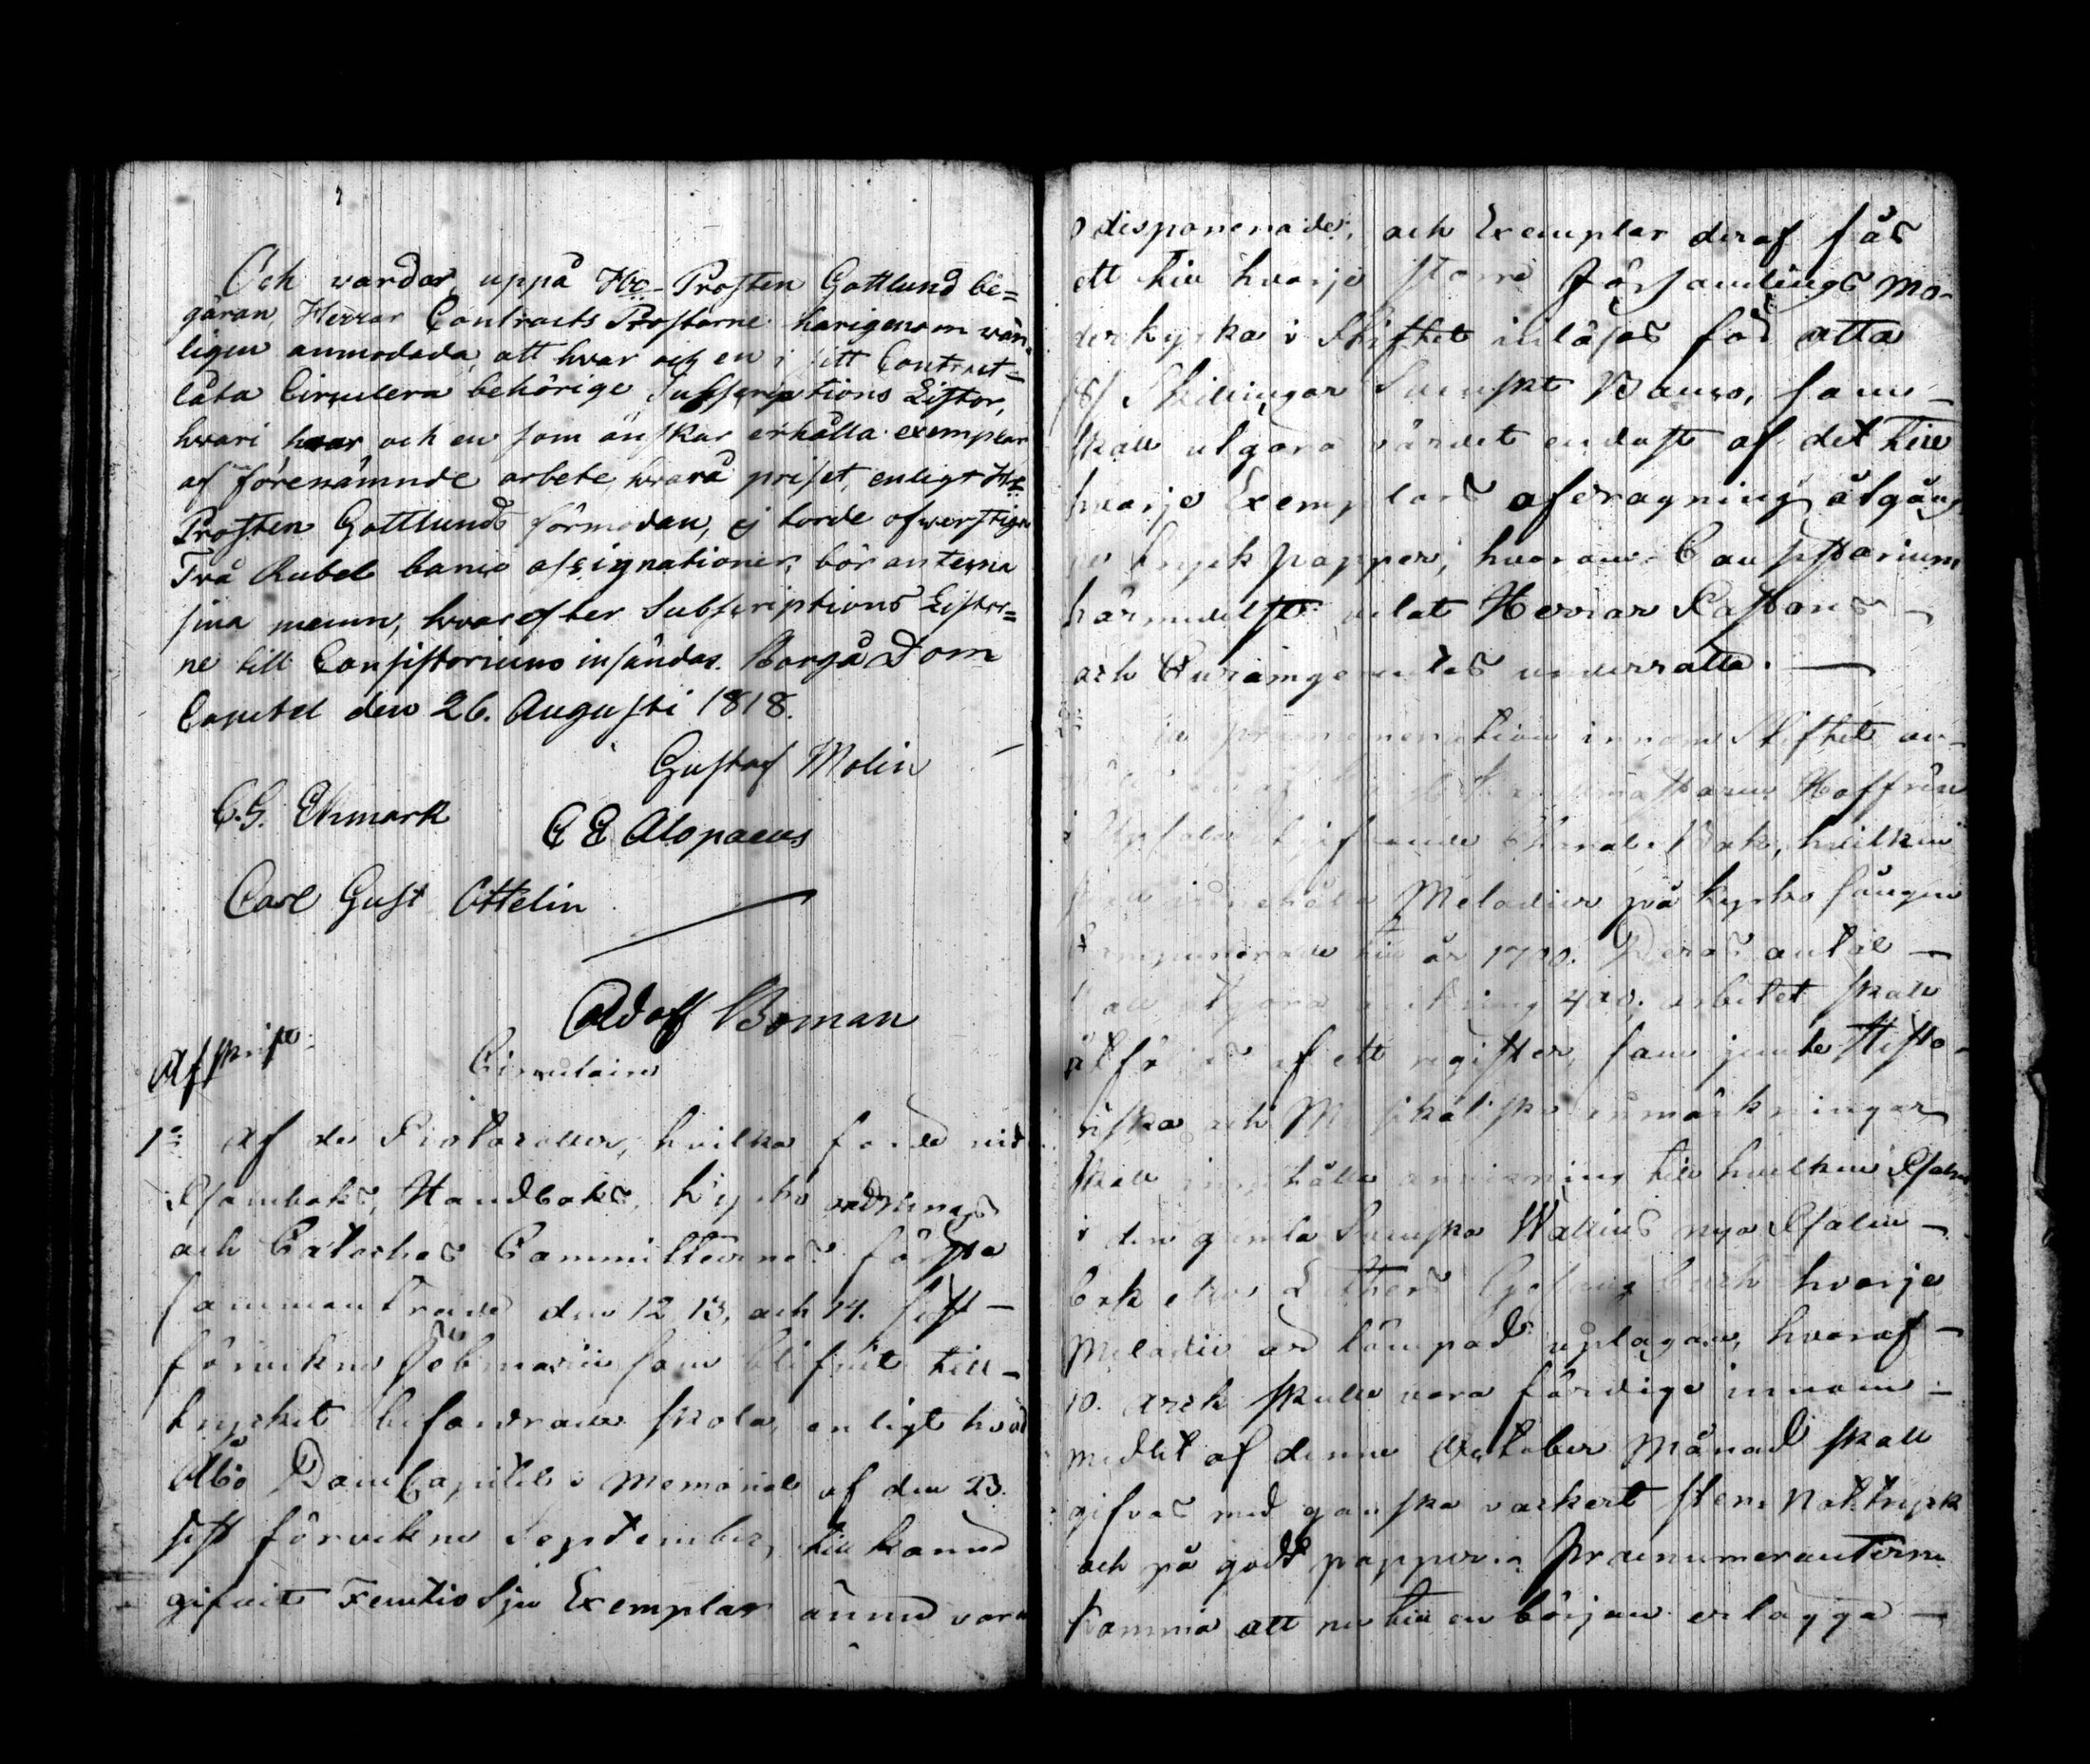 Och vardar, uppå Hr Prosten Gottlund be=
gäran, Herrar Contracts Prostarne harigenom wän=
ligen anmodada, att hvar och en i sitt Contract
låta Circulera behörige Subscriptions Listor,
hvari hvar och en som önskar erhålla exemplar
af förenämnde arbete, hvarå priset, enligt Hr
Prosten Gottlunds förmodan, ej torde ofverstiga
Två Rubel banco assignationer, bör anteckna
sina namn, hvarefter Subscriptions Listor=
ne till Consistorium insändas. Borgå Dom
Capitel den 26. Augusti 1818.
Gustaf Molin
C.G. Ehmark
C E Alopaeus
Carl Gust Ottelin
Adolf Boman
Afskrift
Circulaire
1o Af de Protocoller, hvilka förde vid
Psalmboks, Handboks, Kyrko ordnings
och Cateches Committeernes första
sammanträde den 12, 13, och 14. sist
förvikne Februarii, som blifvit till
trycket befordrade skola, enligt hvad
Åbo Dom Capitel i memorial af den 23.
sist förvikne September, till känna
gifvit Femtio Sju Exemplar ännu vara
disponerade, och Exemplar deraf får
ett till hvarje större Församlings Mo-
derkyrka i Stiftet inlösas för åtta
(8) Skillingar Svenskt Banco, som
skall utgöra värdet endast af det till
hvarje Exemplars afdragning åtgång
ne tryckpapper, hvarom Consistorium
härmedelst velat Herrar Pastorer
och Curamgerentes underrätta.
2o praenumeration innom Stiftet an-
Haffrén
i Choral-Bok, hvilken
skall innehålla Melodier på kyrko sången
componerade till år 1700. Deras antal
skall utgöra omkring 400; arbetet skall
åtföljas af ett register, som jemte Histo-
riska och Musikaliska anmärkningar
skall innehålla anvisning till hvilken Psalm
i den gamla Svenska Wallins nya Psalm
bok eller Luthers Gesang buch hvarje
Melodie är lämpad upplagan, hvaraf
10. arck skulle vara färdige innom
medlet af denne October Månad skall
gifvas med ganska vackert sten Nottryck
och på godt papper. Praenumeranterne
komma att nu till en början erlägga